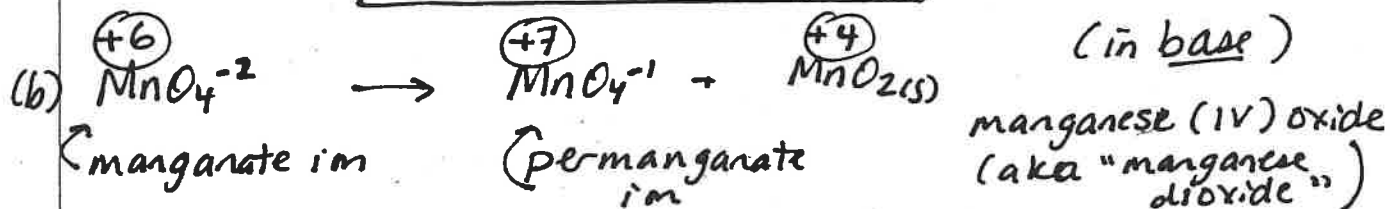 +6 +7 +4
(b) MnO₄⁻² → MnO₄⁻¹ + MnO₂(s) (in base)
manganate ion permanganate ion manganese (IV) oxide
(aka "manganese dioxide")